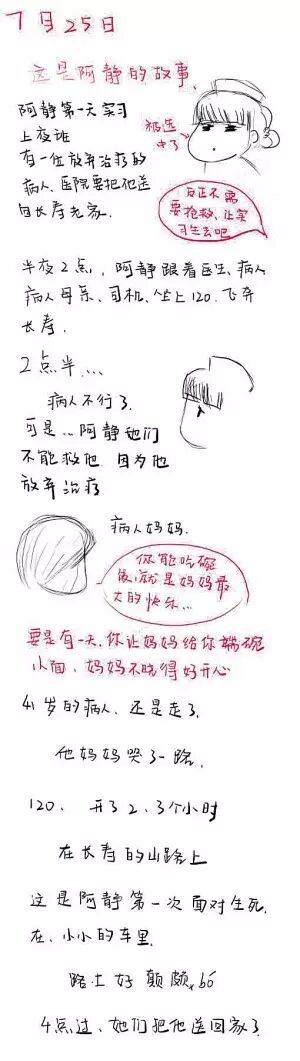 7月25日
这是阿静的故事、
阿静第一天实习
上夜班
有一位放弃治疗的
病人、医院要把他送
回长寿老家.
被选
中了
反正不需
要抢救、让实
习生去吧
半夜2点，阿静跟着医生、病人
病人母亲、司机、坐上120. 飞奔
长寿.
2点半...
病人不行了.
可是...阿静她们
不能救他 因为他
放弃治疗
病人妈妈.
你能吃碗
饭,就是妈妈最
大的快乐...
要是有一天、你让妈妈给你端碗
小面、妈妈不晓得好开心
41岁的病人、还是走了.
他妈妈哭了一路.
120、 开了2、3个小时
在长寿的山路上
这是阿静第一次面对生死.
在、小小的车里.
路上好颠颇
4点过、她们把他送回家了.